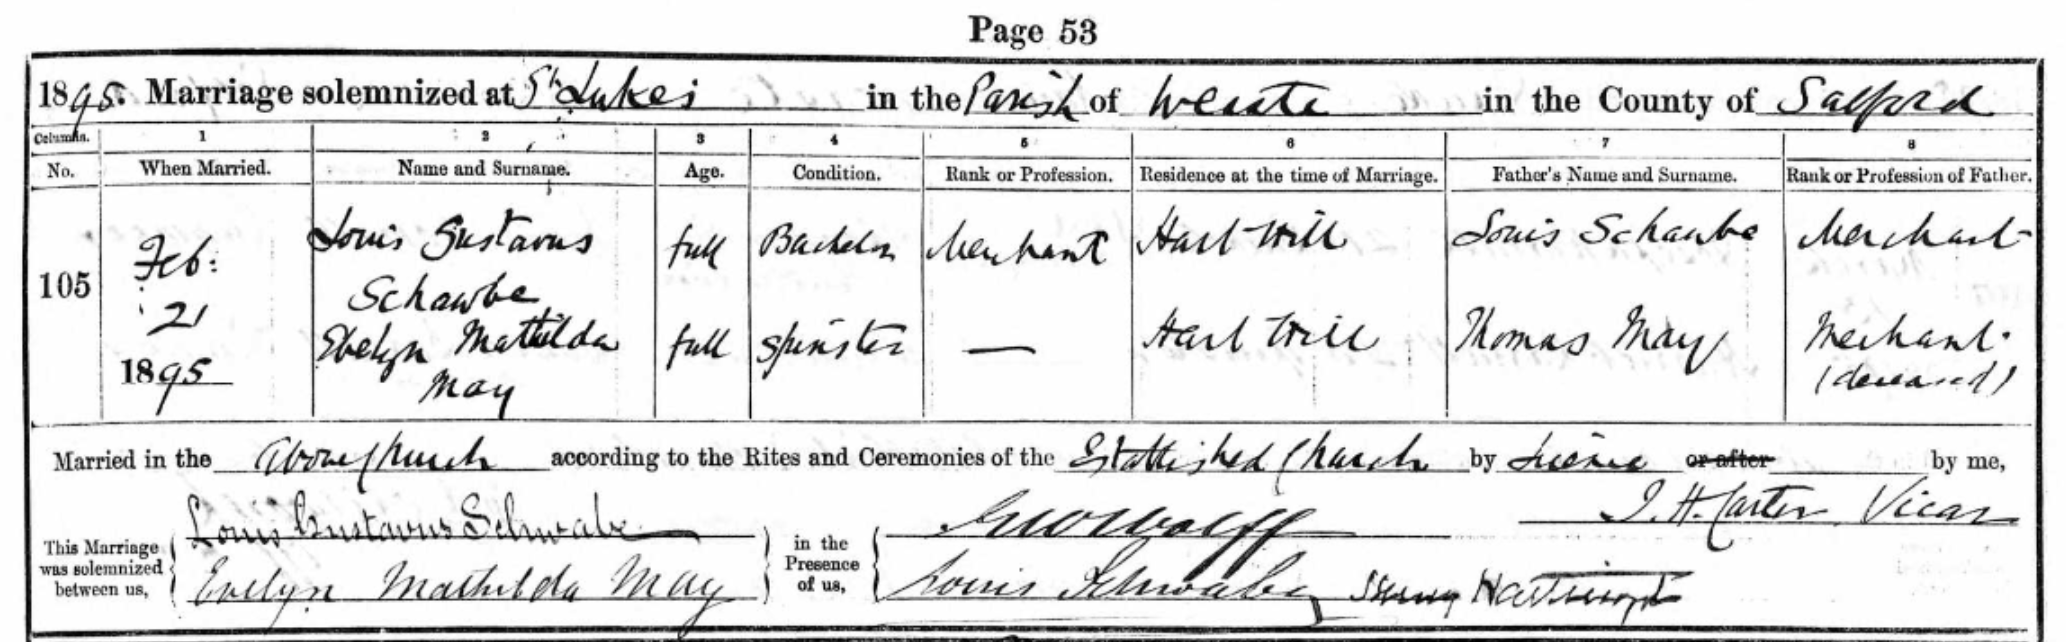 Page 53
1895. Marriage solemnized at St Lukes in the Parish of Weaste in the County of Salford
Columns. 1 2 3 4 5 6 7 8
No. When Married. Name and Surname. Age. Condition. Rank or Profession. Residence at the time of Marriage. Father's Name and Surname. Rank or Profession of Father.
105 Feb: 21 1895 Louis Gustavus Schawbe full Bachelor Merchant Hart Hill Louis Schawbe Merchant
Evelyn Mathilda May full Spinster — Hart Hill Thomas May Merchant. (deceased)
Married in the above Church according to the Rites and Ceremonies of the Established Church by Licence or after by me,
J. H. Carter Vicar
This Marriage was solemnized between us, Louis Gustavus Schwabe in the Presence of us,
Evelyn Mathilda May Louis Schwabe